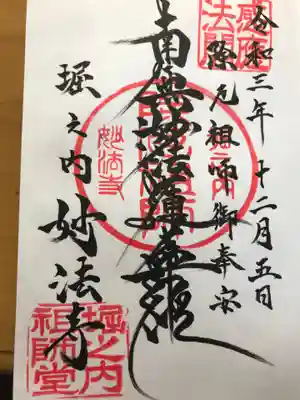 令和三年十二月五日
除厄祖師御奉安
南無妙法蓮華経
堀之内妙法寺
妙法寺
堀之内
祖師堂